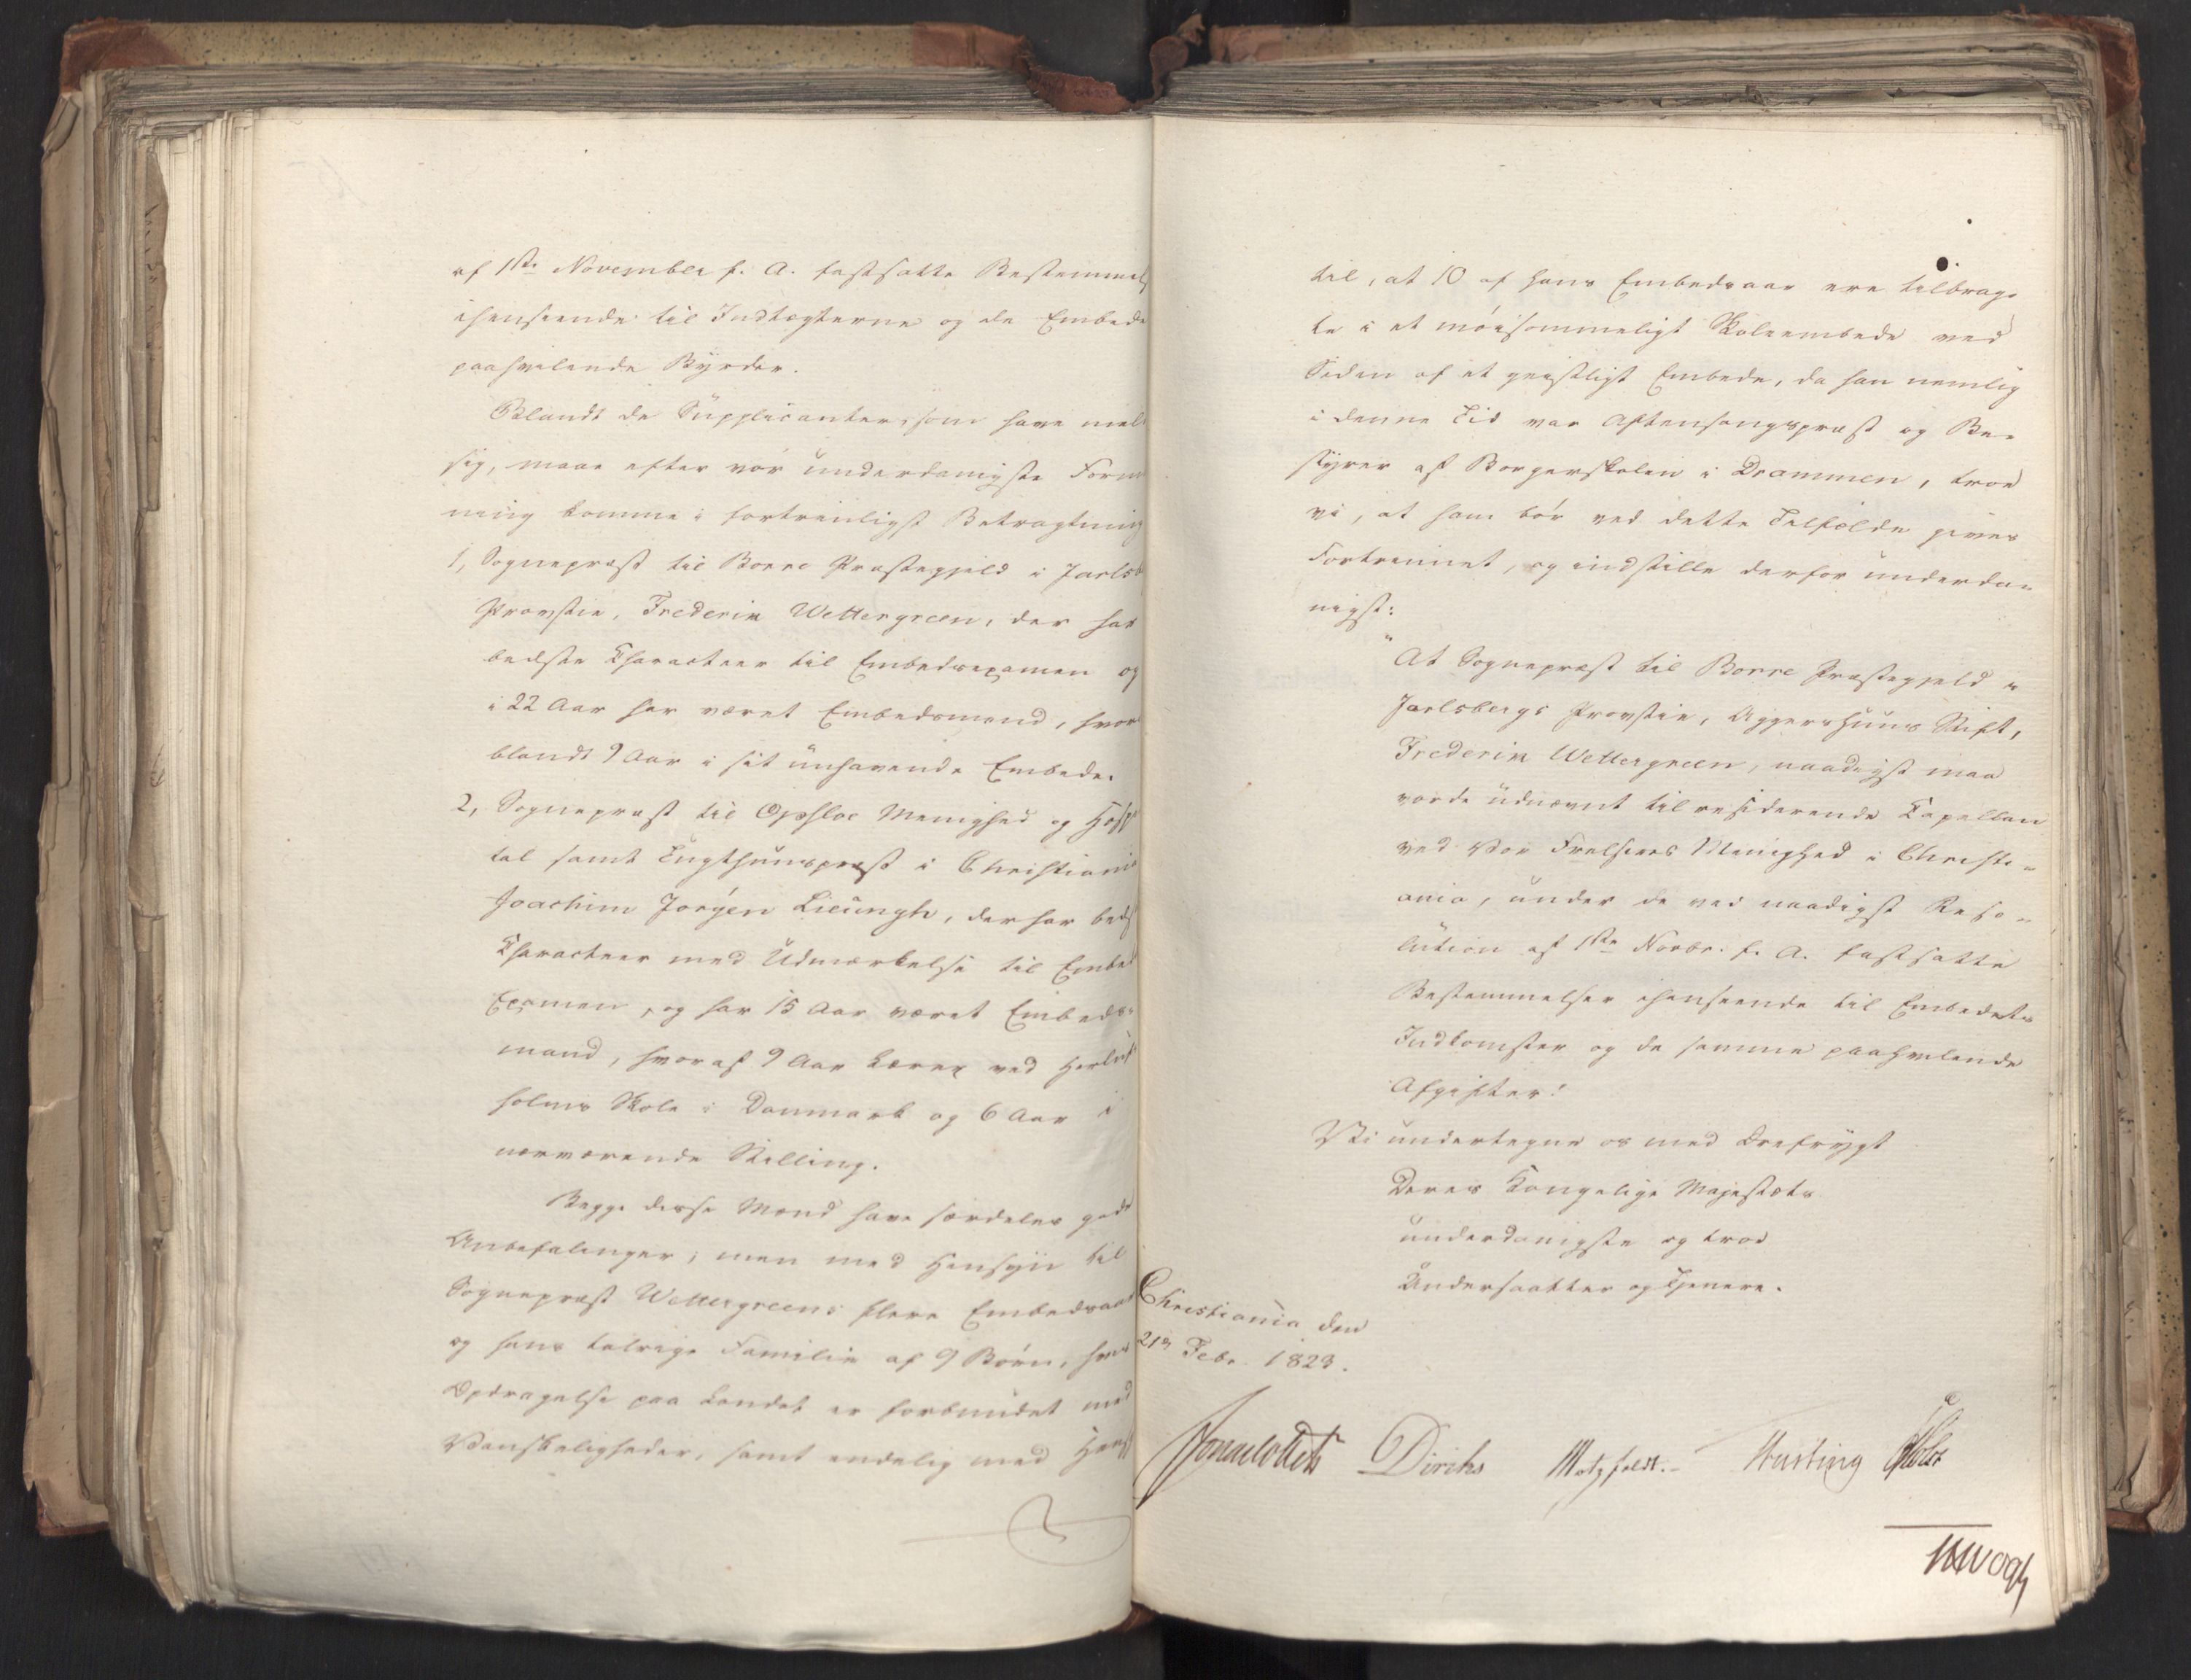 af 1ste November f. A. fastsatte Bestemmels
ihenseende til Indtægterne og de Embede
paahvilende Byrder.
Blandt de Supplicanter, som have meldt
sig, maae efter vor underdanigste Forme
ning komme i fortrinligst Betragtning
1, Sognepræst til Borre Præstegjeld i Jarlsb
Provstie, Frederik Wettergreen, der har
bedste Character til Embedsexamen og
i 22 Aar har været Embedsmand, hvor
blandt 9 Aar i sit inhavende Embede.
2, Sognepræst til Opsloe Menighed og Hospi
tal samt Tugthuuspræst i Christiania
Joachim Jørgen Lieungh, der har bedst
Character med Udmærkelse til Embeds
Examen, og har 15 Aar været Embeds-
mand, hvoraf 9 Aar Lærer ved Herlufs
holms Skole i Danmark og 6 Aar i
nærværende Stilling.
Begge disse Mænd have særdeles gode
Anbefalinger; men med Hensyn til
Sognepræst Wettergreens flere Embedsaar
og hans talrige Familie af 9 Børn, hvis
Opdragelse paa Landet er forbundet med
Vanskeligheder, samt endelig med Hens
til, at 10 af hans Embedsaar ere tilbrag-
te i et møisommeligt Skoleembede ved
Siden af et geistligt Embede, da han nemlig
i denne Tid var Aftensangspræst og Be-
styrer af Borgerskolen i Drammen, troe
vi, at han bør ved dette Tilfælde gives
Fortrinnet, og indstille derfor underda-
nigst:
"At Sognepræst til Borre Præstegjeld i
Jarlsbergs Provstie, Aggershuus Stift,
Frederik Wettergreen, naadigst maa
vorde udnævnt til residerende Capellan
ved Vor Frelsers Menighed i Christi-
ania, under de ved naadigst Reso-
lution af 1ste Novbr. f. A. fastsatte
Bestemmelser ihenseende til Embedets
Indkomster og de samme paahvilende
Afgifter."
Vi undertegne os med Ærefrygt
Deres Kongelige Majestæts
underdanigste og troe
Undersaatter og Tjenere.
Christiania den
21de Febr. 1823.
Sommerhielm Diriks Motzfeldt. Fasting Holst
Vogt